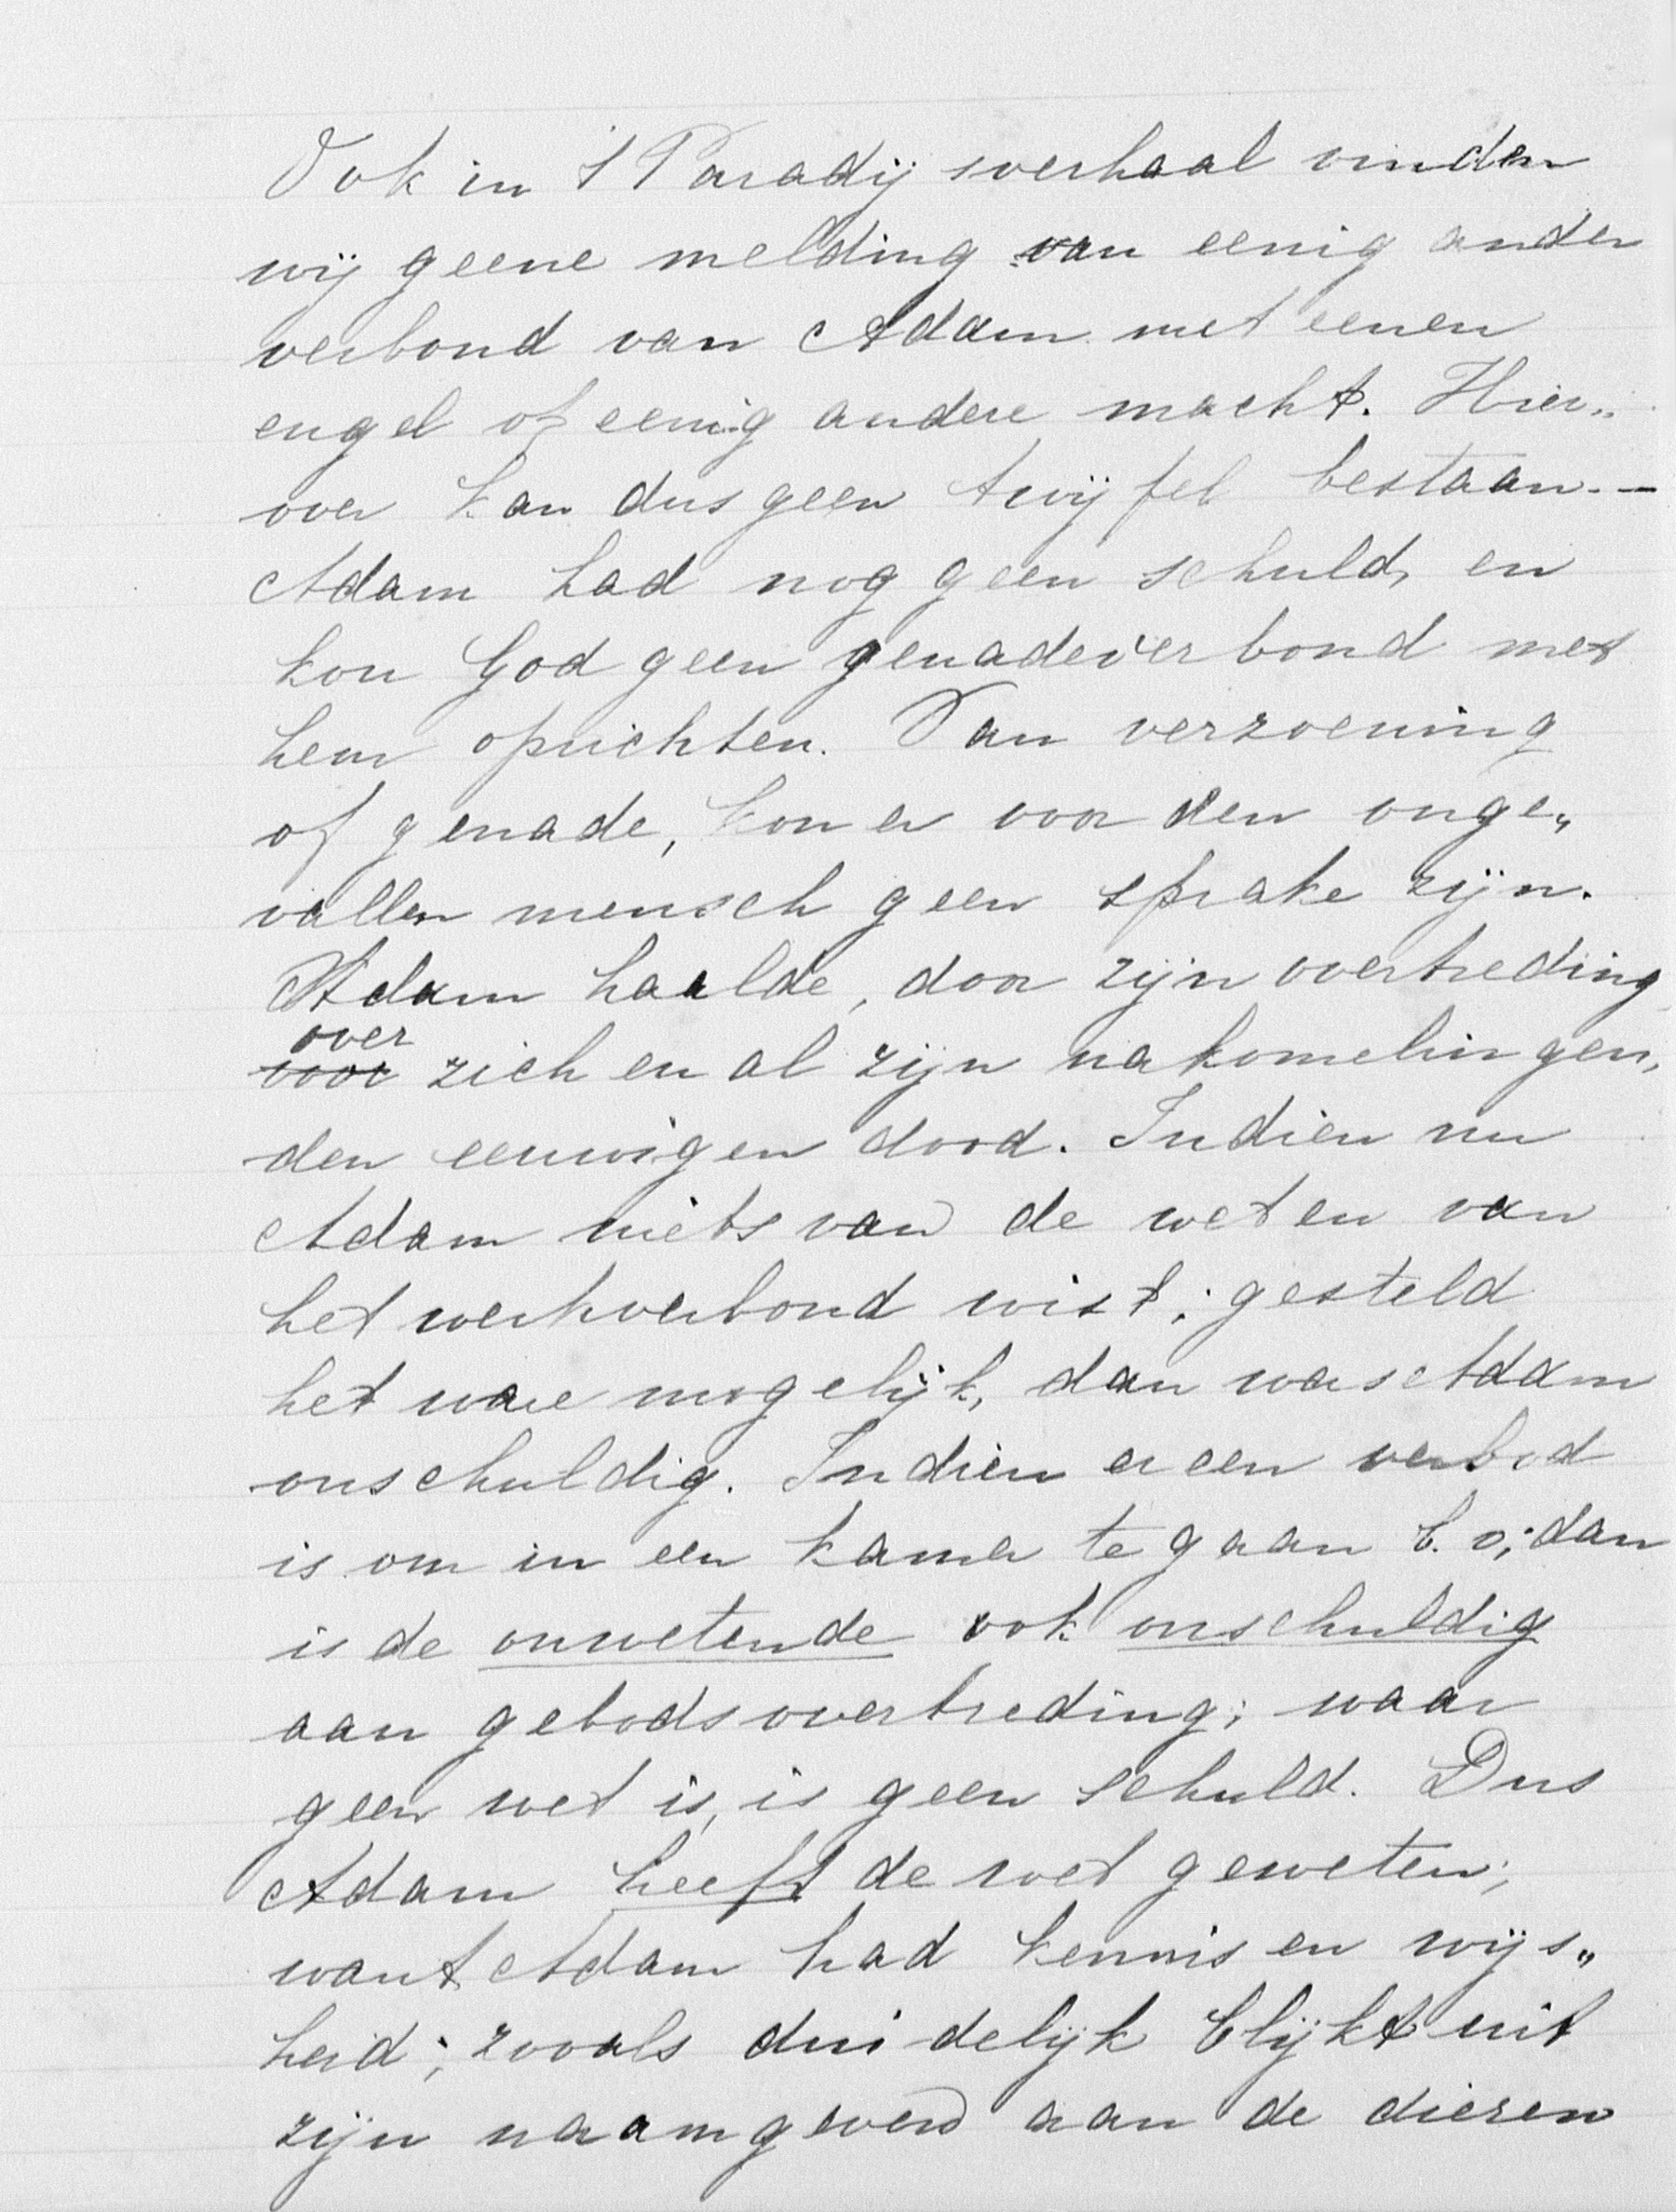 Ook in 't Paradijsverhaal vinden
wij geene melding van eenig ander
verbond van Adam met eenen
engel of eenig andere macht. Hier„
over kan dus geen twijfel bestaan. –
Adam had nog geen schuld, en
kon God geen genadeverbond met
hem oprichten. Van verzoening
of genade, kon er voor den onge„
vallen mensch geen sprake zijn.
Adam haalde, door zijn overtreding
over
voor zich en al zijn nakomelingen,
den eeuwigen dood. Indien nu
Adam niets van de wet en van
het werkverbond wist; gesteld
het ware mogelijk, dan was Adam
onschuldig. Indien er een verbod
is om in een kamer te gaan b.v; dan
is de onwetende ook onschuldig
aan gebodsovertreding; waar
geen wet is, is geen schuld. Dus
Adam heeft de wet geweten;
want Adam had kennis en wijs„
heid; zooals duidelijk blijkt uit
zijn naamgeven aan de dieren